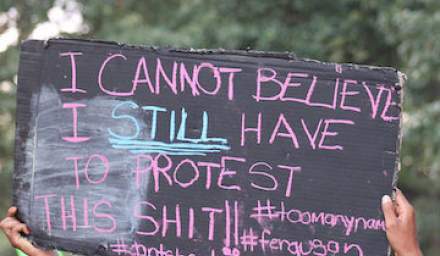 I CANNOT BELIEVE
I STILL HAVE
TO PROTEST
THIS SHIT!! #toomanynam
#ferguson